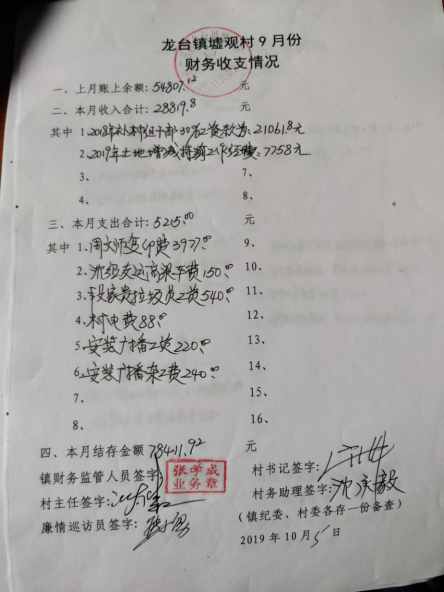 龙台镇墟观村9月份
财务收支情况
一、上月账上余额:54807.12 元
二、本月收入合计:28819.8 元
其中 1、2018年 村组干部 工资款为:21061.8元
2、2019年土地增减挂钩工作经费:7758元
3、 7、
4、 8、
三、本月支出合计:5215.00 元
其中 1、周 复印费3977.00 9、
2、沈 费150.00 10、
3、段家贵垃圾员工资540.00 11、
4、村电费88.00 12、
5、安装广播工资220.00 13、
6、安装广播 工费240.00 14、
7、 15、
8、 16、
四、本月结存金额 78411.92 元
镇财务监管人员签字: 张学成 业务章 村书记签字:
村主任签字: 村务助理签字:沈 毅
廉情巡访员签字: (镇纪委、村委各存一份备查)
2019年10月5日